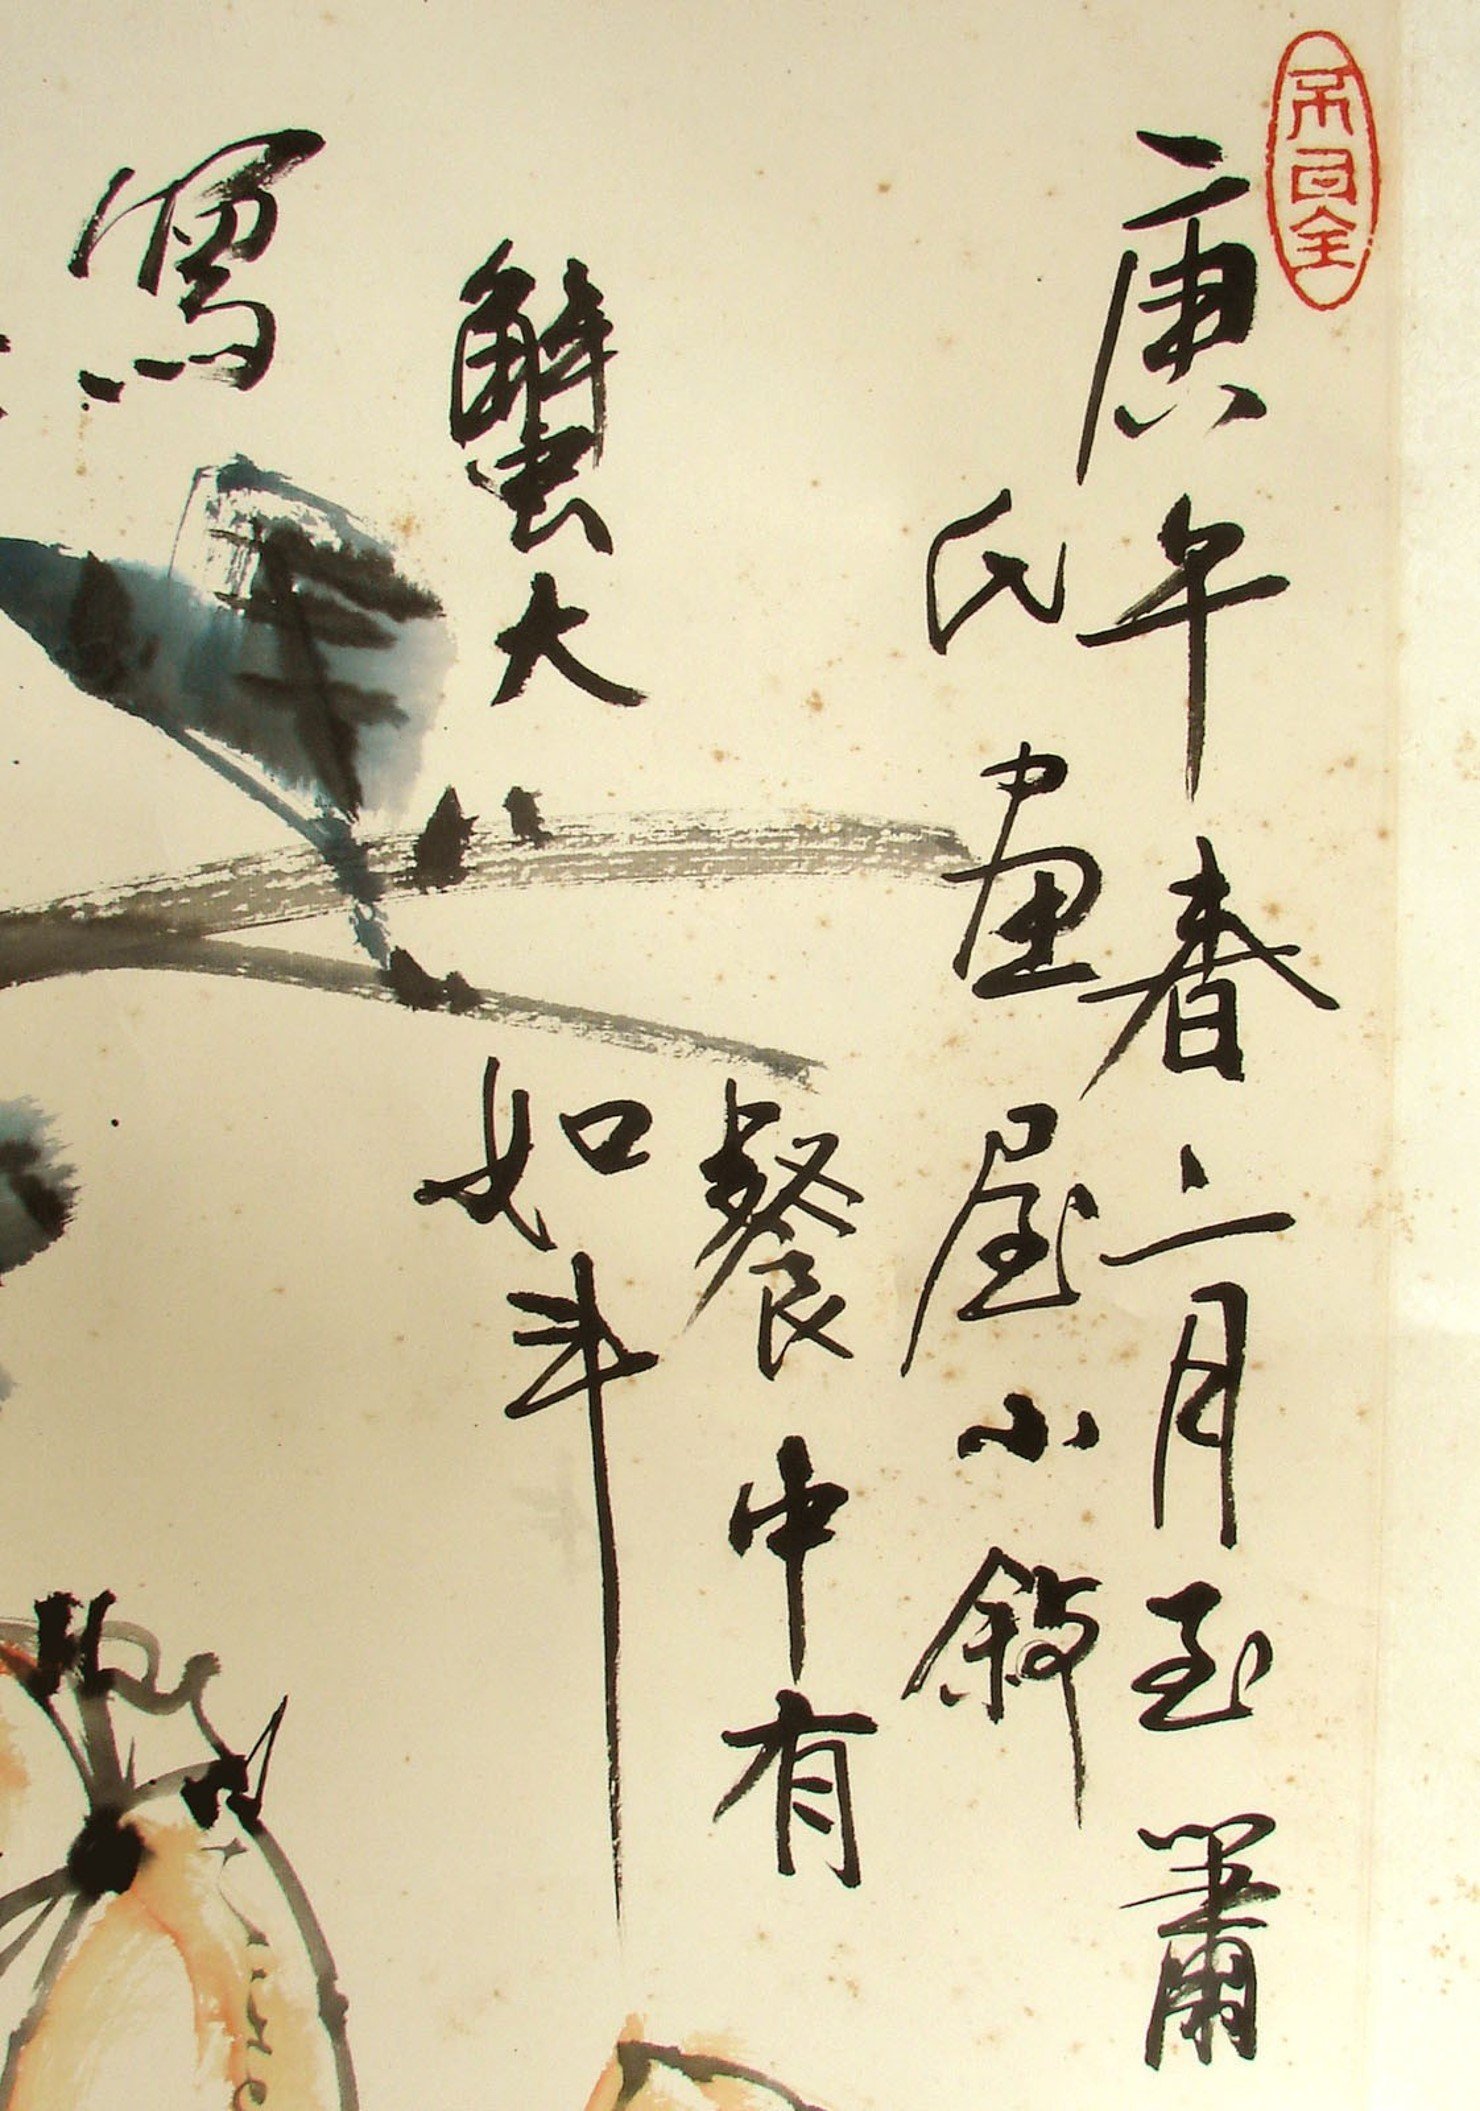 庚午春二月至蕭
氏畫屋小敘
餐中有
蟹大如斗
寫